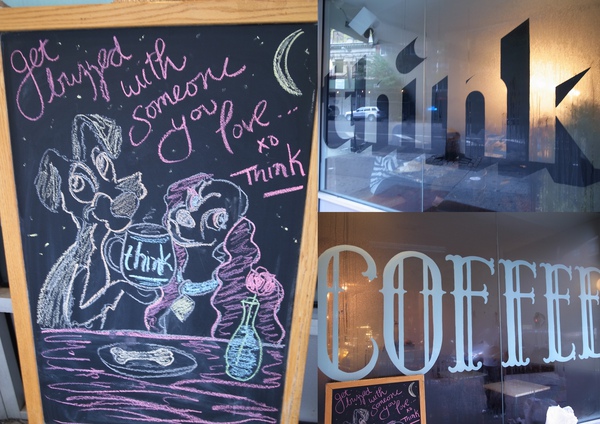 get
buzzed
with
someone
you
love...
xo
Think
think
think
COFFEE
get
buzzed
with
someone
you
love...
xo
Think